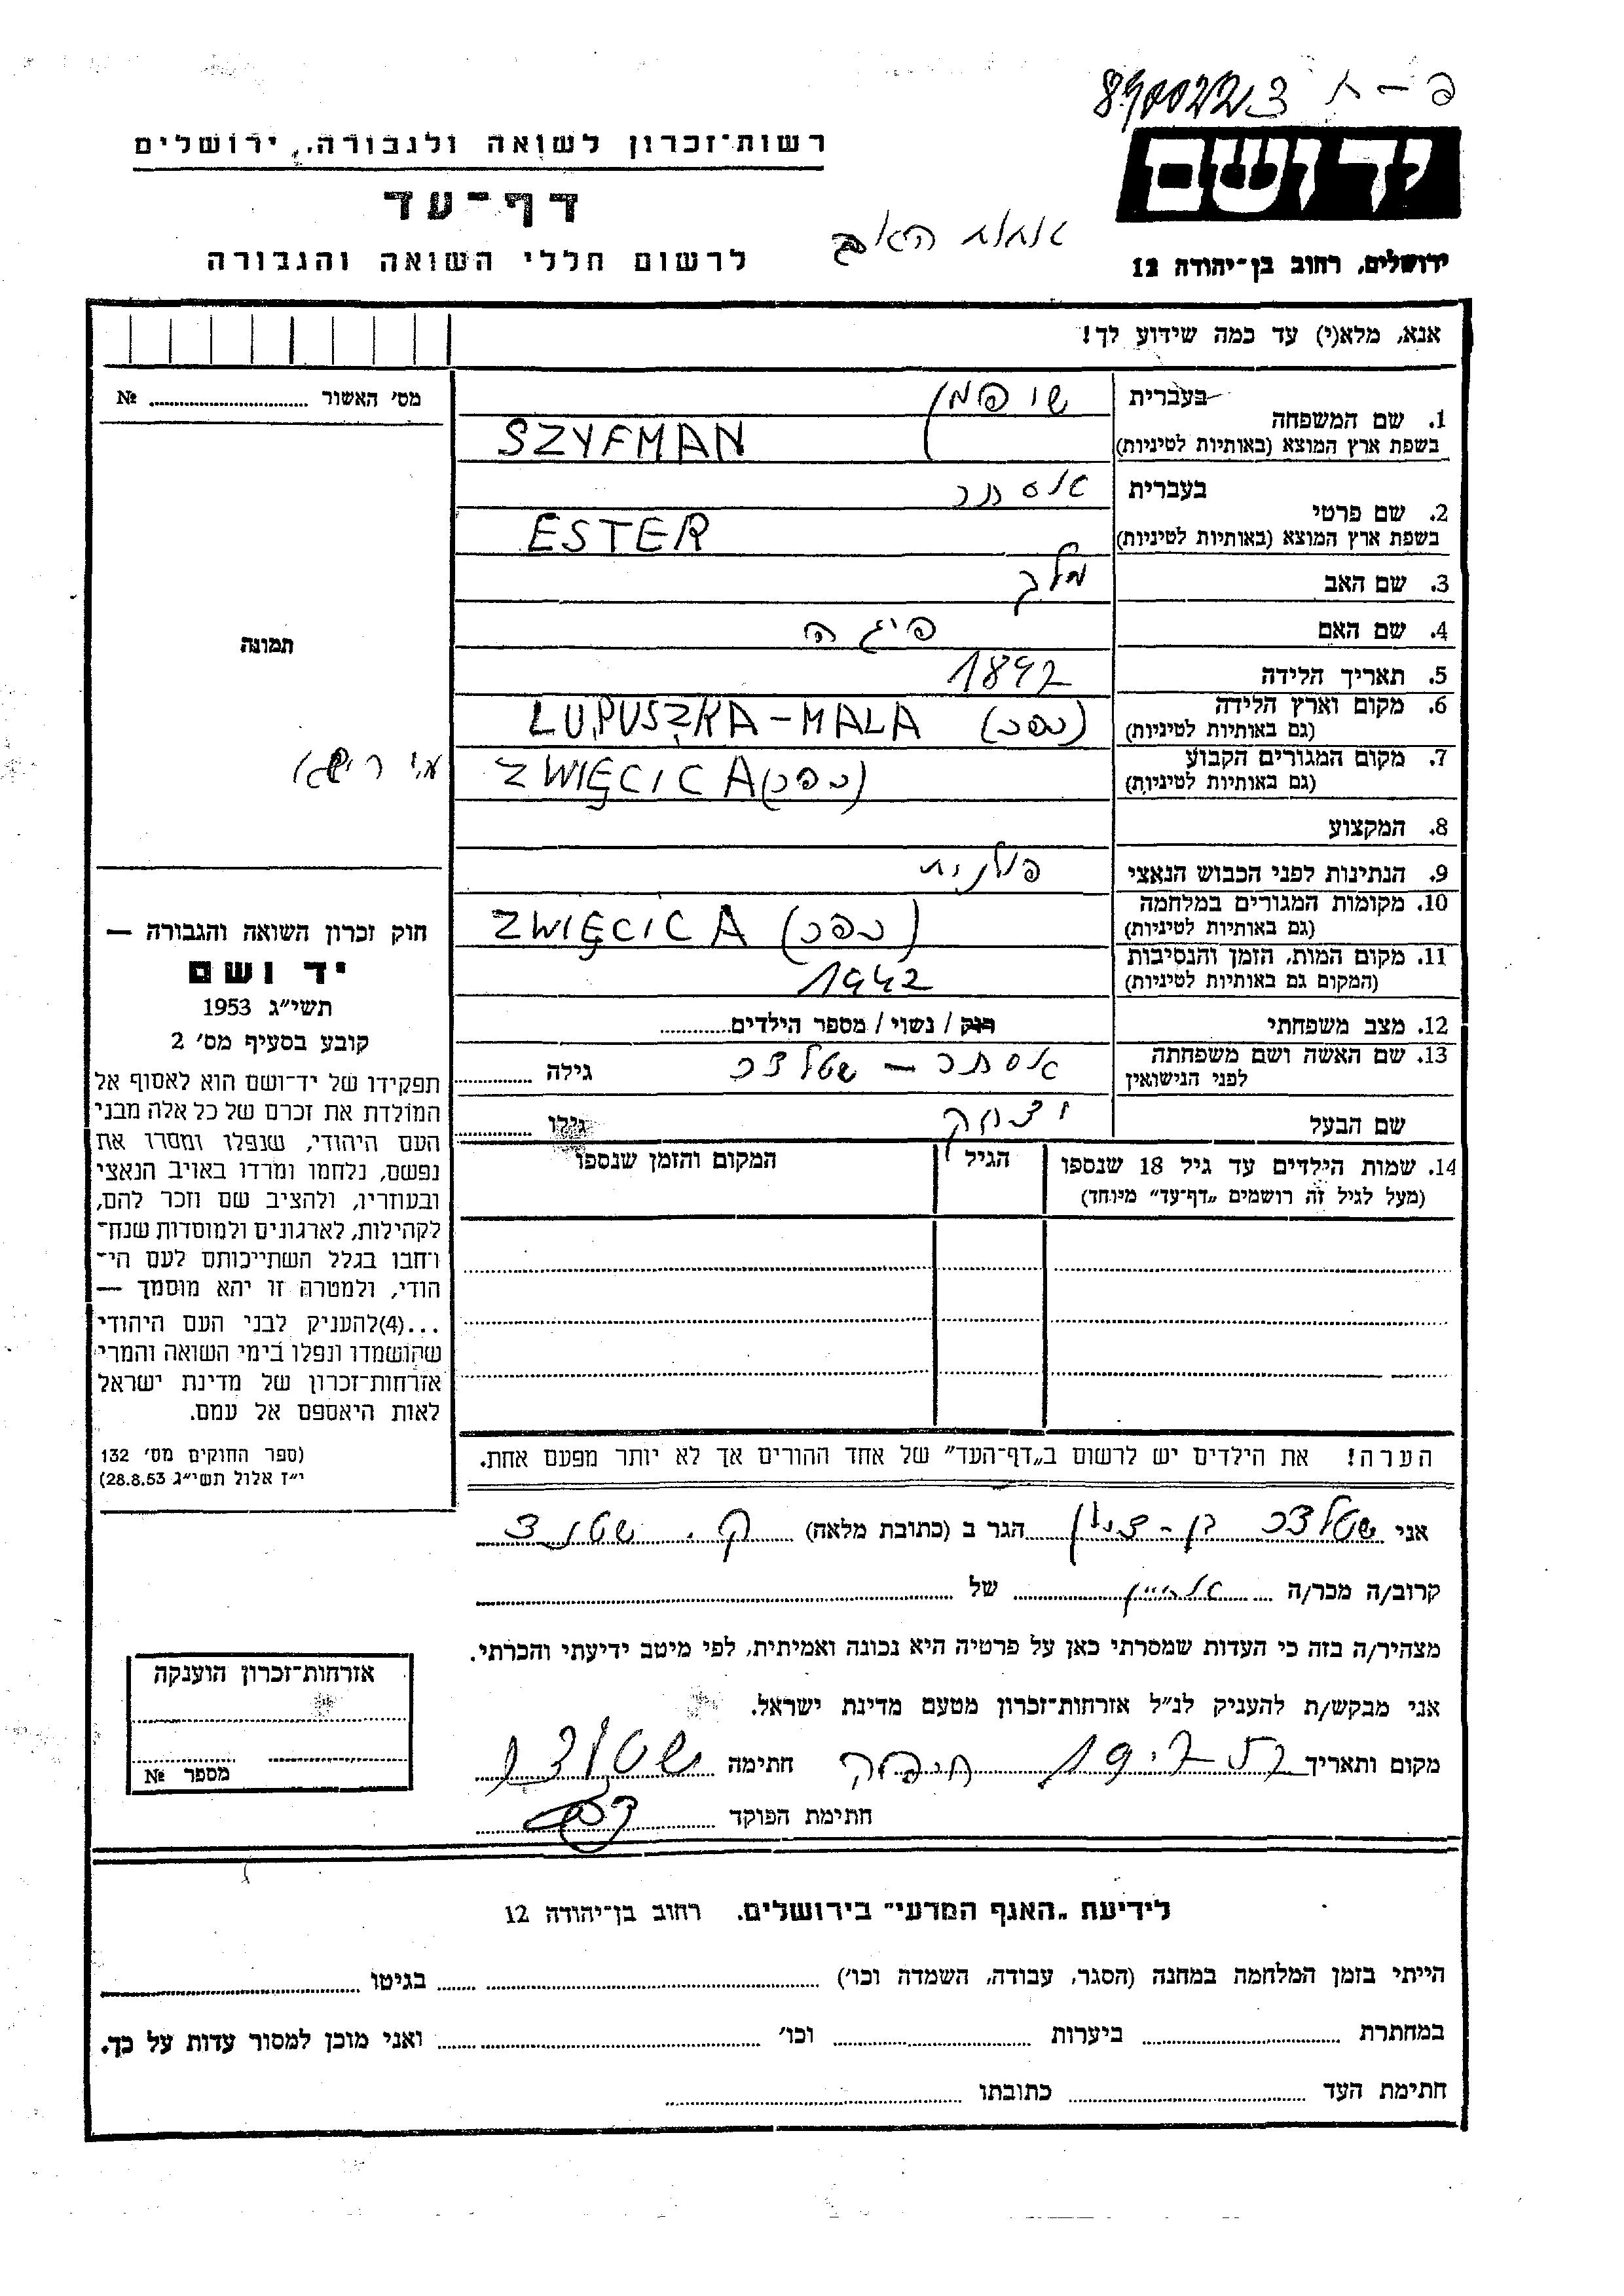 8900223 פ-ח
ידושם
רשות־זכרון לשואה ולגבורה, ירושלים
דף־עד
לרשום חללי השואה והגבורה
ירושלים, רחוב בן־יהודה 12
אנא, מלא(י) עד כמה שידוע לך!
מס׳ האשור № ........
1. שם המשפחה
בעברית
שיפמן
בשפת ארץ המוצא (באותיות לטיניות)
SZYFMAN
2. שם פרטי
בעברית
אסתר
בשפת ארץ המוצא (באותיות לטיניות)
ESTER
3. שם האב
מלך
4. שם האם
פיגה
5. תאריך הלידה
1892
6. מקום וארץ הלידה
(גם באותיות לטיניות)
LUPUSZKA-MALA (כפר)
7. מקום המגורים הקבוע
(גם באותיות לטיניות)
ZWIĘCICA (כפר)
8. המקצוע
9. הנתינות לפני הכבוש הנאצי
פולנית
10. מקומות המגורים במלחמה
(גם באותיות לטיניות)
ZWIĘCICA (כפר)
11. מקום המות, הזמן והנסיבות
(המקום גם באותיות לטיניות)
1942
12. מצב משפחתי
רוק / נשוי / מספר הילדים........
13. שם האשה ושם משפחתה
לפני הנישואין
אסתר – שטלצר
גילה ........
שם הבעל
יצחק
גילו ........
14. שמות הילדים עד גיל 18 שנספו
(מעל לגיל זה רושמים „דף־עד״ מיוחד)
הגיל
המקום והזמן שנספו
הערה! את הילדים יש לרשום ב„דף־העד״ של אחד ההורים אך לא יותר מפעם אחת.
תמונה
חוק זכרון השואה והגבורה —
יד ושם
תשי״ג 1953
קובע בסעיף מס׳ 2
תפקידו של יד־ושם הוא לאסוף אל
המולדת את זכרם של כל אלה מבני
העם היהודי, שנפלו ומסרו את
נפשם, נלחמו ומרדו באויב הנאצי
ובעוזריו, ולהציב שם וזכר להם,
לקהילות, לארגונים ולמוסדות שנח־
רבו בגלל השתייכותם לעם הי־
הודי, ולמטרה זו יהא מוסמך —
...(4) להעניק לבני העם היהודי
שהושמדו ונפלו בימי השואה והמרי
אזרחות־זכרון של מדינת ישראל
לאות היאספם אל עמם.
(ספר החוקים מס׳ 132
י״ז אלול תשי״ג 28.8.53)
אני שטלצר בן-ציון הגר ב (כתובת מלאה) ק.
קרוב/ה מכר/ה ........ של ........
מצהיר/ה בזה כי העדות שמסרתי כאן על פרטיה היא נכונה ואמיתית, לפי מיטב ידיעתי והכרתי.
אני מבקש/ת להעניק לנ״ל אזרחות־זכרון מטעם מדינת ישראל.
מקום ותאריך חיפה חתימה
חתימת הפוקד
אזרחות־זכרון הוענקה
מספר №
לידיעת „האגף המדעי״ בירושלים. רחוב בן־יהודה 12
הייתי בזמן המלחמה במחנה (הסגר, עבודה, השמדה וכו׳) ........ בגיטו ........
במחתרת ........ ביערות ........ וכו׳ ........ ואני מוכן למסור עדות על כך.
חתימת העד ........ כתובתו ........